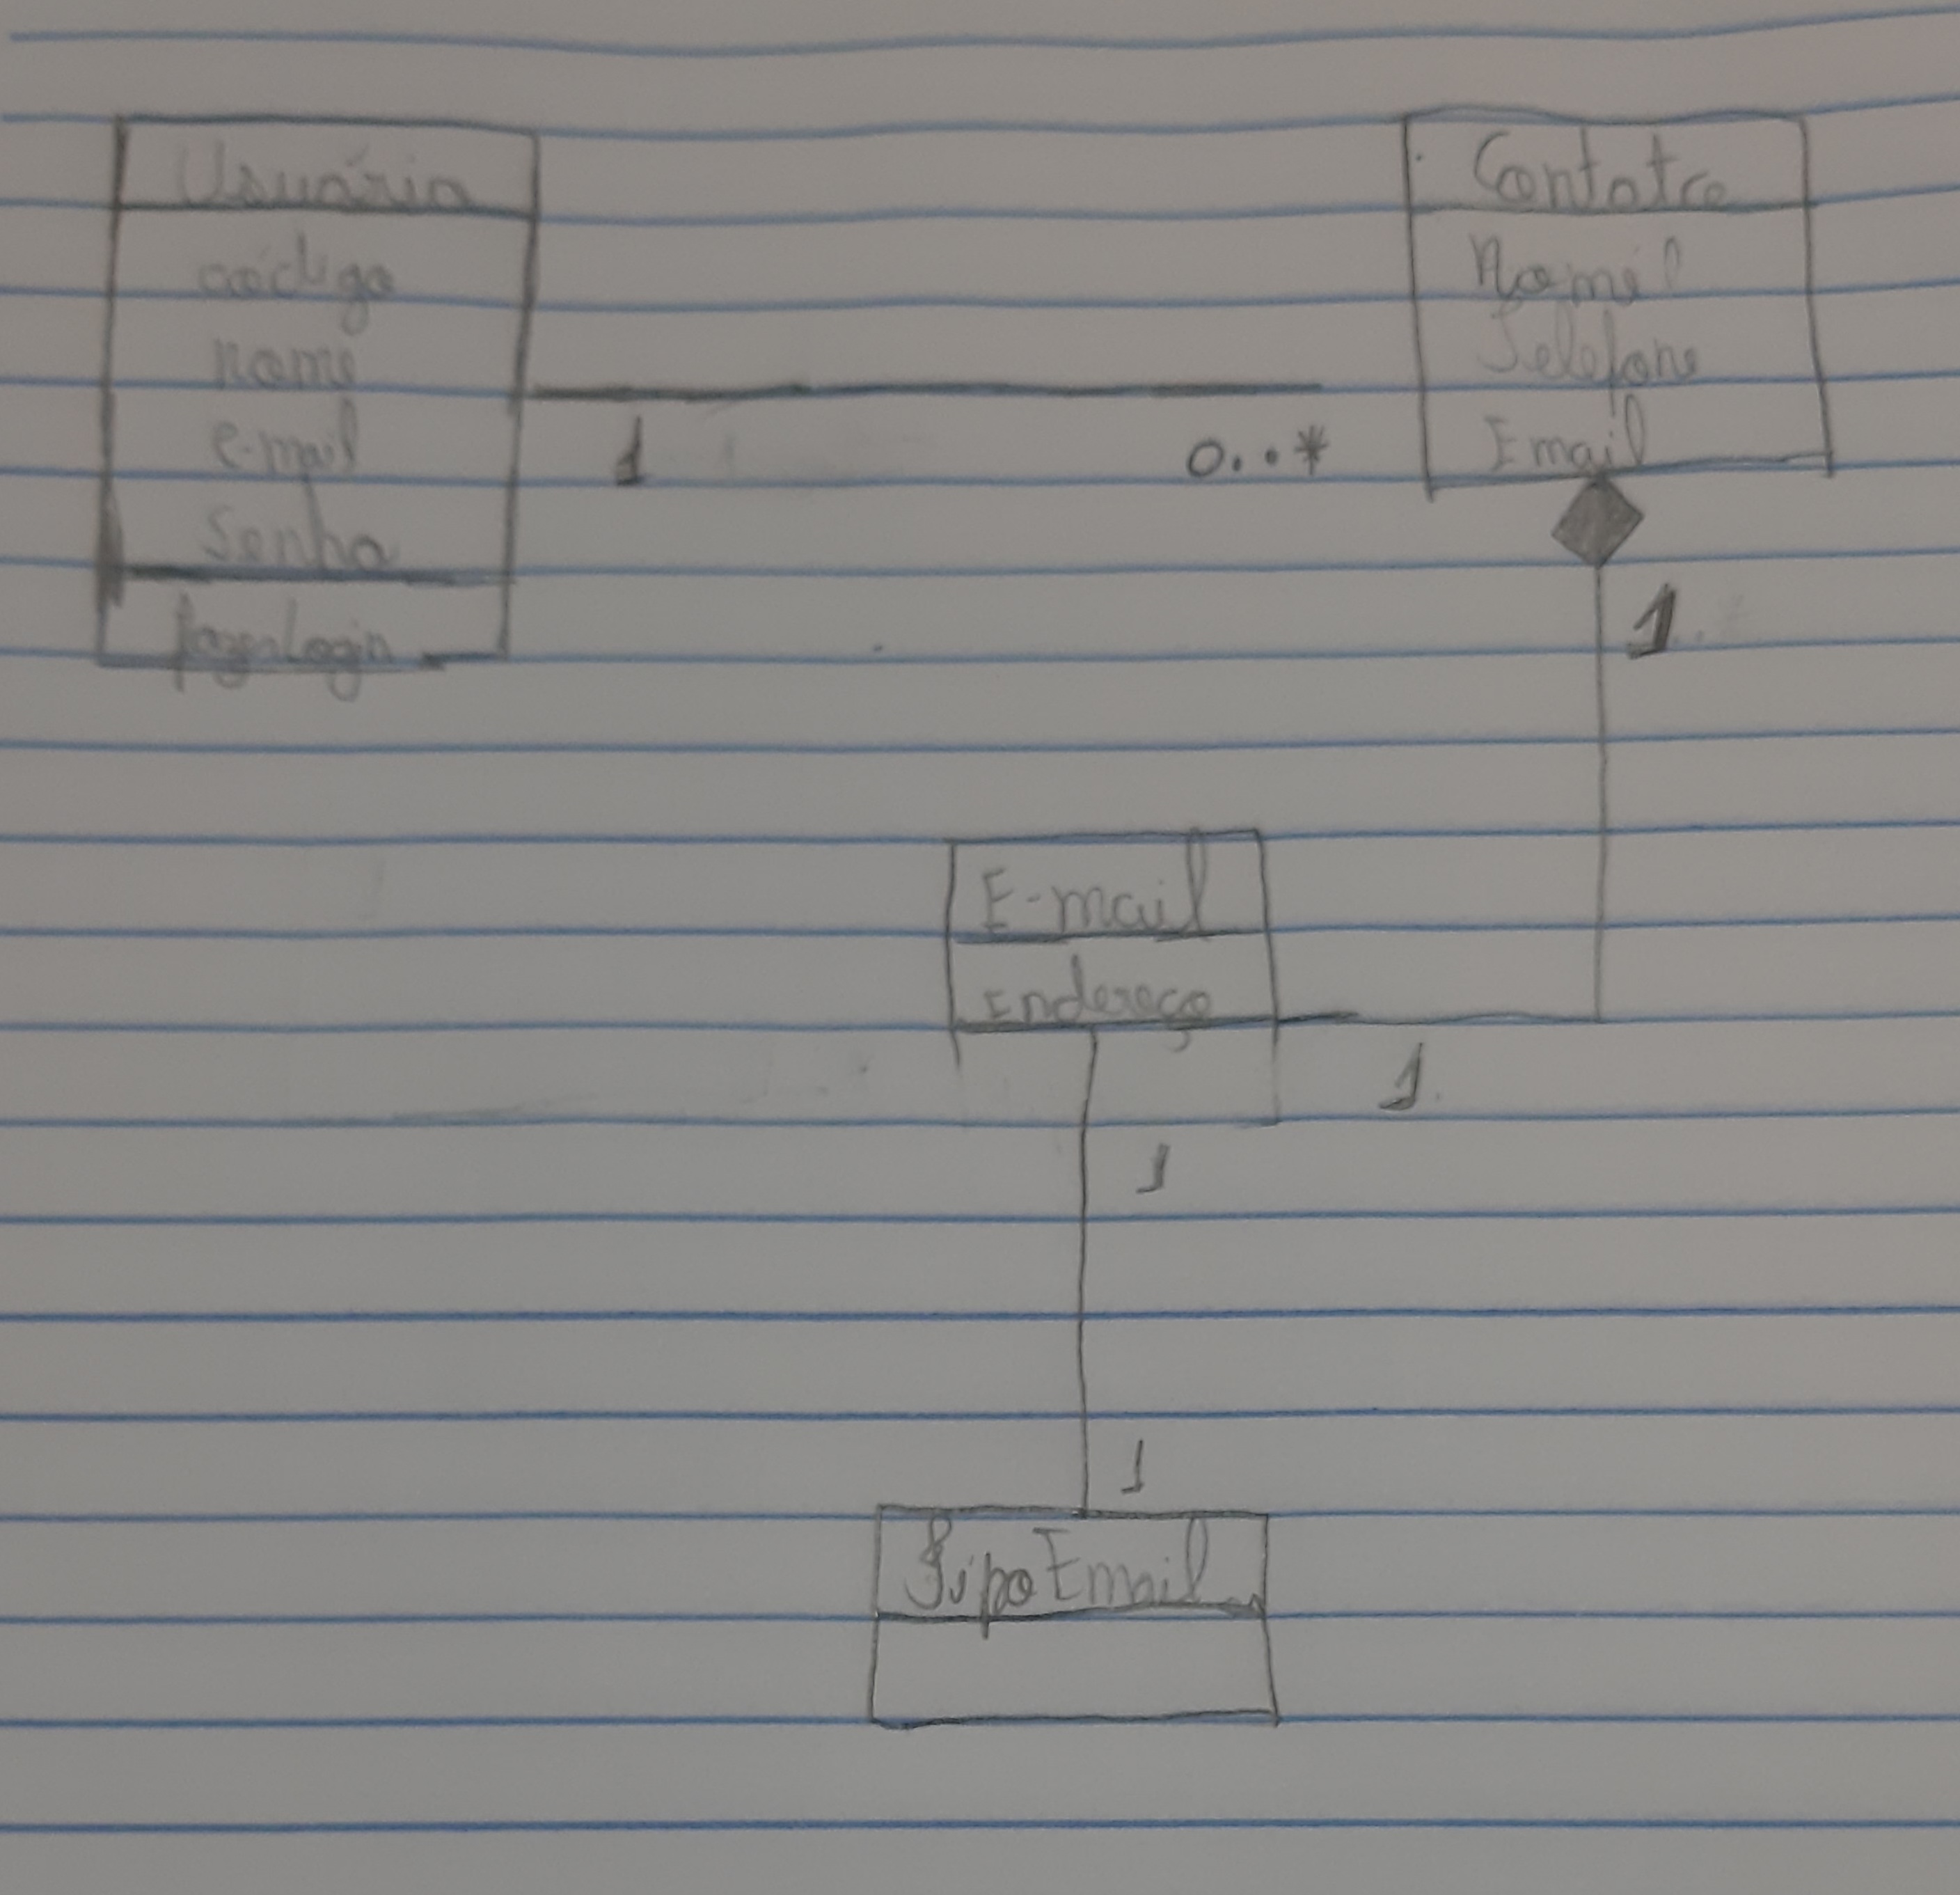 Usuário
código
nome
e-mail
Senha
fazerLogin
1
0..*
Contato
Nome
Telefone
Email
1
E-mail
Endereço
1
1
1
TipoEmail